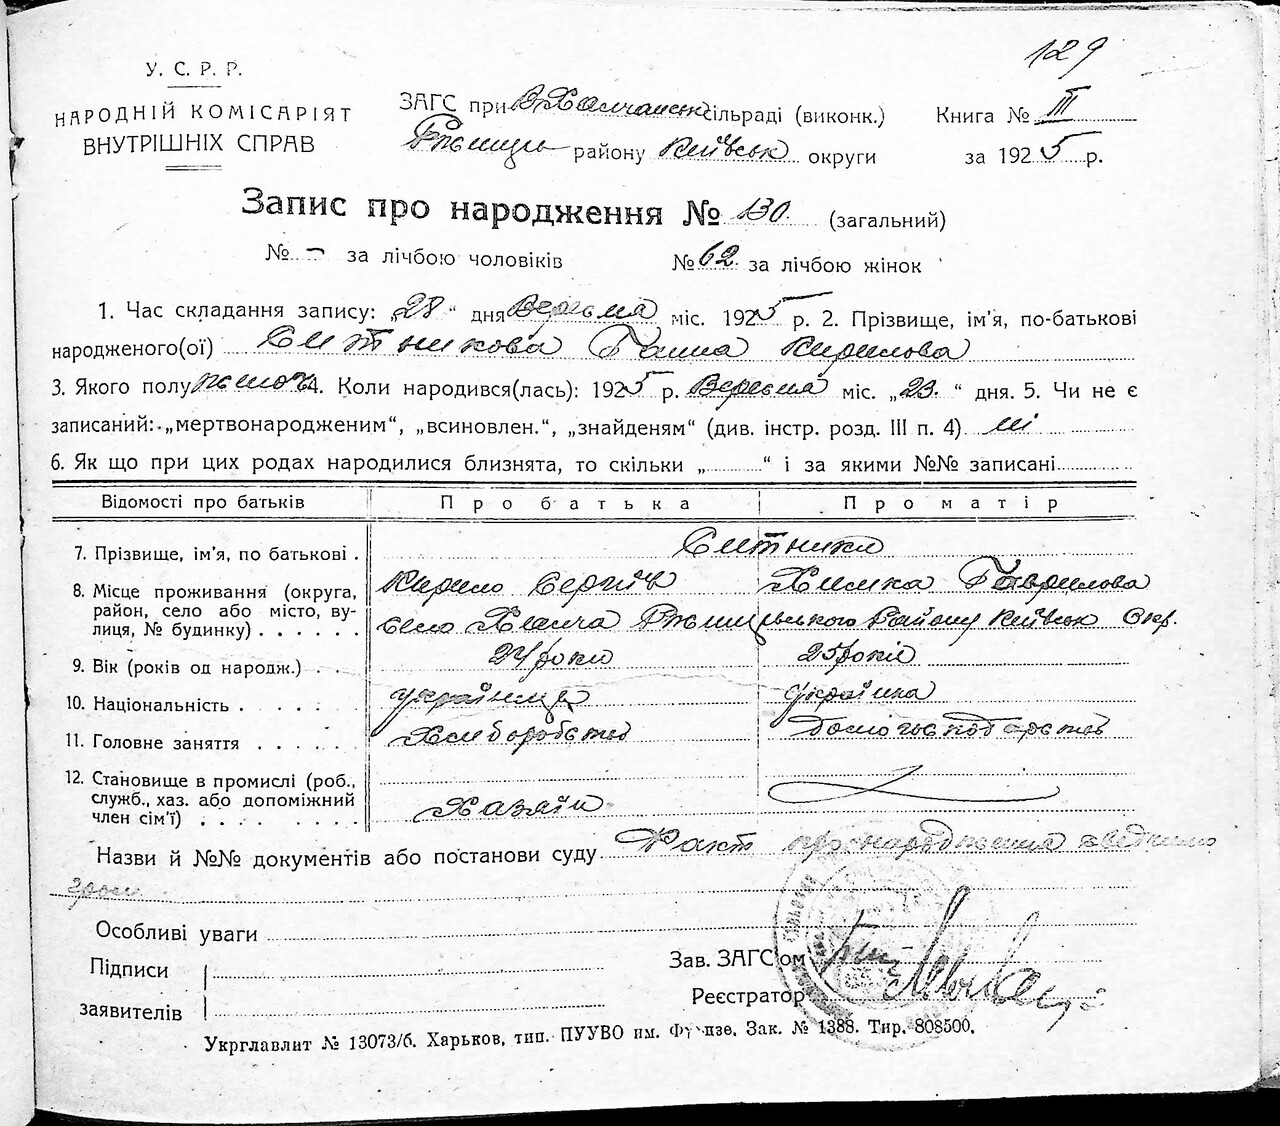 129
У. С. Р. Р.
НАРОДНІЙ КОМІСАРІЯТ
ВНУТРІШНІХ СПРАВ
ЗАГС при В Халчанськ сільраді (виконк.)
Ржищів району Київськ округи
Книга № III
за 1925 р.
Запис про народження № 130. (загальний)
№ – за лічбою чоловіків № 62. за лічбою жінок
1. Час складання запису: „28“ дня Вересня міс. 1925 р. 2. Прізвище, ім'я, по-батькові
народженого(ої) Ситникова Ганна Кирилова
3. Якого полу жіноч 4. Коли народився(лась): 1925 р. Вересня міс. „23.“ дня. 5. Чи не є
записаний: „мертвонародженим“, „всиновлен.“, „знайденям“ (див. інстр. розд. III п. 4) ні
6. Як що при цих родах народилися близнята, то скільки „ “ і за якими №№ записані
Відомості про батьків Про батька Про матір
7. Прізвище, ім'я, по батькові . Ситники
Кирило Сергіїв Химка Гаврилова
8. Місце проживання (округа, район, село або місто, вулиця, № будинку) . . . . . .
село Халча Ржищівського Району Київськ Окр.
9. Вік (років од народж.) . . 24 роки 25 років
10. Національність . . . . . українець українка
11. Головне заняття . . . . . . Хліборобство домогосподарство
12. Становище в промислі (роб., служб., хаз. або допоміжний член сім'ї) . . . . . . . .
Хазяїн
Назви й №№ документів або постанови суду Факт про народження
Особливі уваги
Підписи
заявителів
Зав. ЗАГС'ом
Реєстратор
Укрглавлит № 13073/б. Харьков, тип. ПУУВО им. Фрунзе. Зак. № 1388. Тир. 808500.